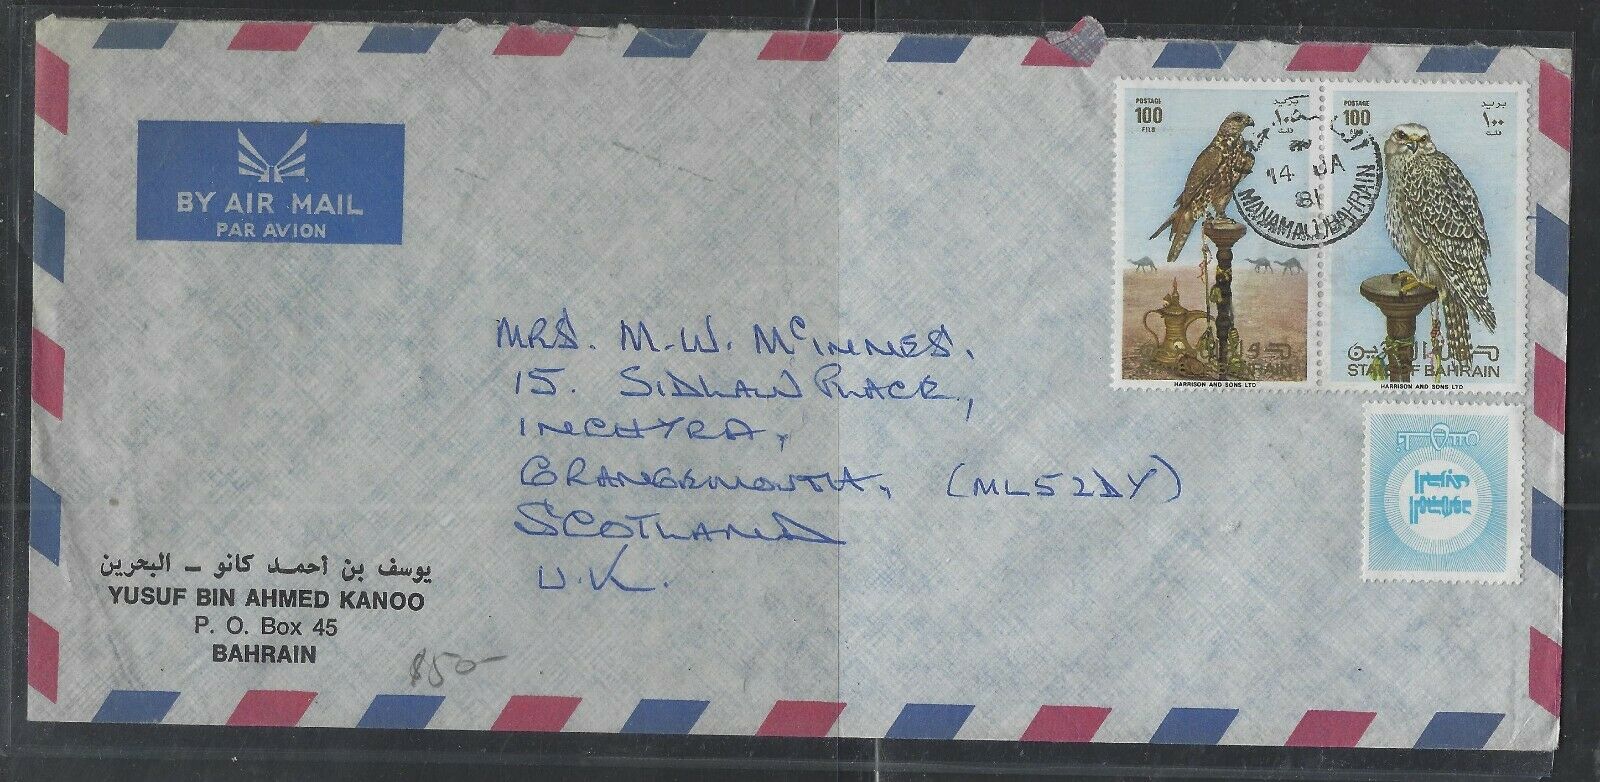 BY AIR MAIL
PAR AVION
POSTAGE
100
FILS
بريد
١٠٠
فلس
POSTAGE
100
FILS
بريد
١٠٠
فلس
14 JA
81
MANAMA BAHRAIN
STATE OF BAHRAIN
HARRISON AND SONS LTD
STATE OF BAHRAIN
HARRISON AND SONS LTD
MRS. M.W. McINNES.
15. SIDLAW PLACE,
INCHYRA,
GRANGEMOUTH, (ML52DY)
SCOTLAND
U.K.
يوسف بن أحمد كانو – البحرين
YUSUF BIN AHMED KANOO
P. O. Box 45
BAHRAIN
$50-